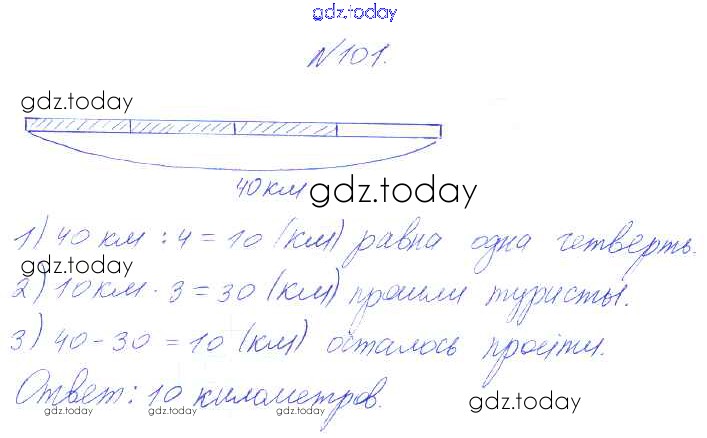 gdz.today
№101.
gdz.today
40 км gdz.today
1) 40 км : 4 = 10 (км) равна одна четверть.
gdz.today
2) 10 км · 3 = 30 (км) прошли туристы.
3) 40 - 30 = 10 (км) осталось пройти.
Ответ: 10 километров.
gdz.today gdz.today gdz.today gdz.today